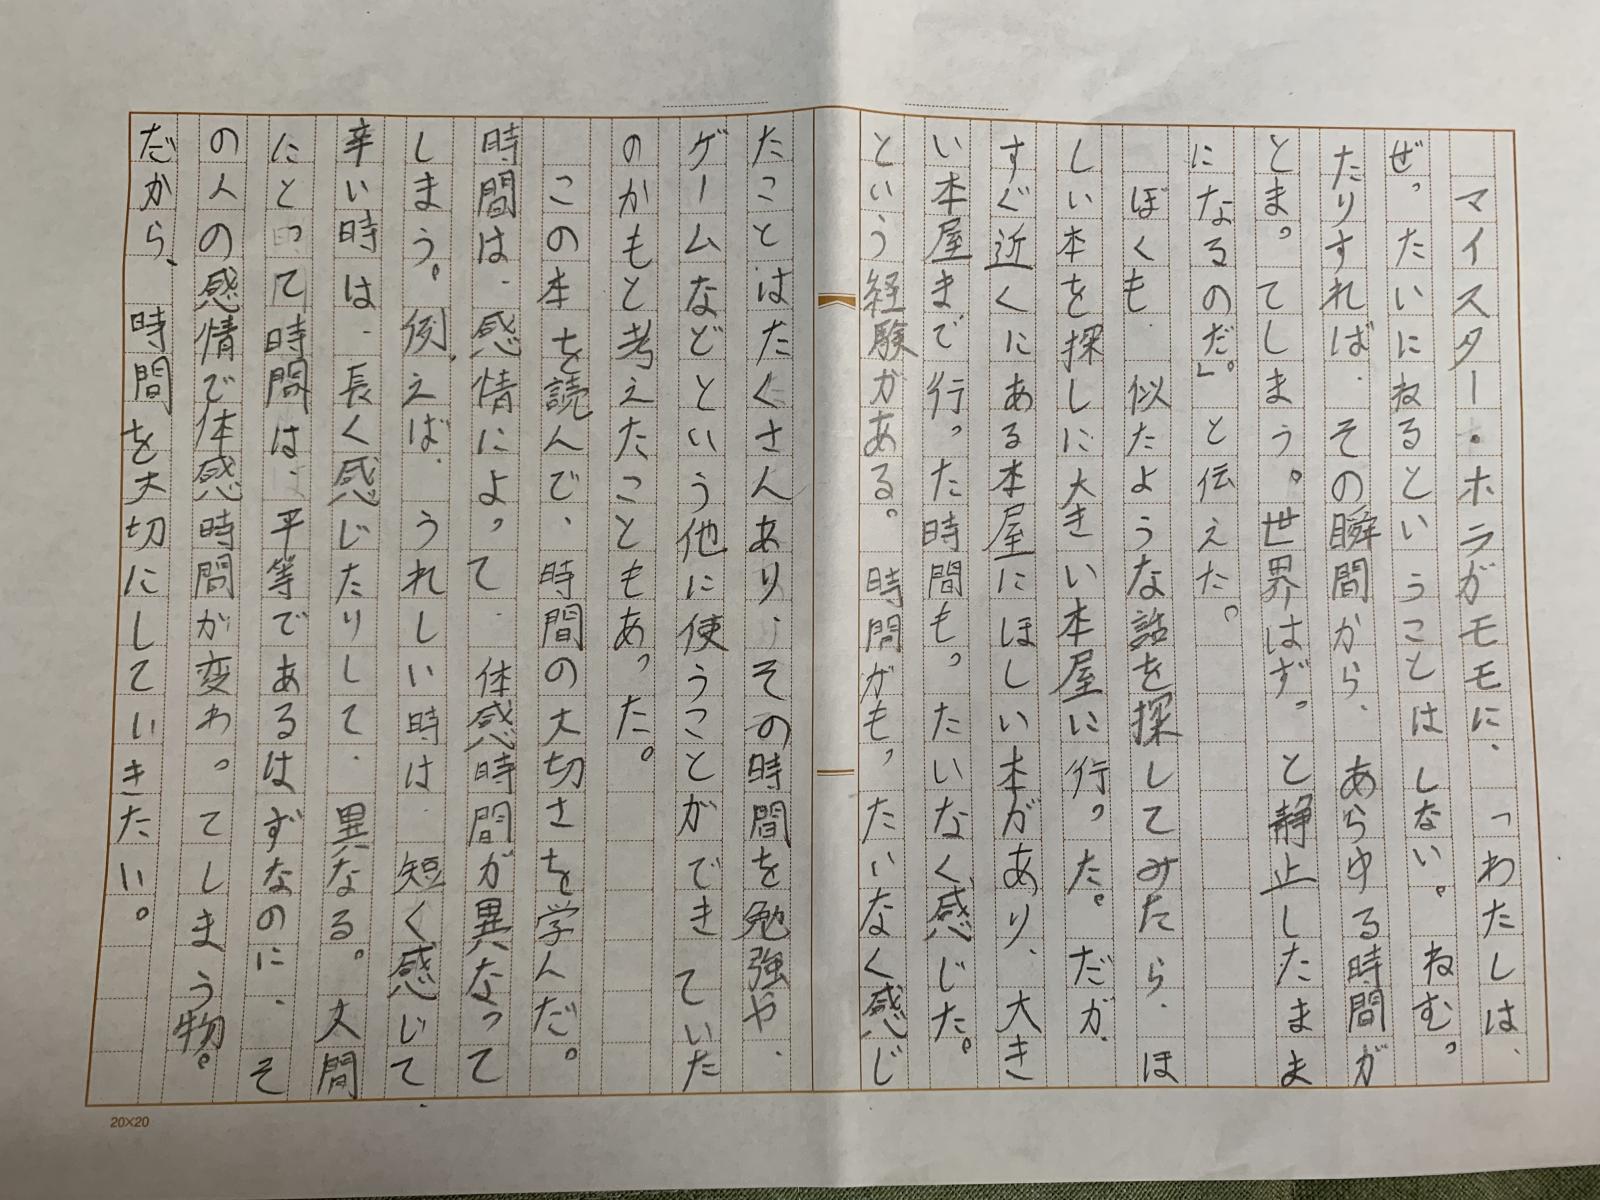 マイスター・ホラがモモに、「わたしは、
ぜったいにねるということはしない。ねむっ
たりすれば、その瞬間から、あらゆる時間が
とまってしまう。世界はずっと静止したまま
になるのだ」。と伝えた。
ぼくも、似たような話を探してみたら、ほ
しい本を探しに大きい本屋に行った。だが、
すぐ近くにある本屋にほしい本があり、大き
い本屋まで行った時間もったいなく感じた。
という経験がある。時間がもったいなく感じ
たことはたくさんあり、その時間を勉強や、
ゲームなどという他に使うことができていた
のかもと考えたこともあった。
この本を読んで、時間の大切さを学んだ。
時間は、感情によって、体感時間が異なって
しまう。例えば、うれしい時は、短く感じて、
辛い時は、長く感じたりして、異なる。人間
にとって時間は、平等であるはずなのに、そ
の人の感情で体感時間が変わってしまう物。
だから、時間を大切にしていきたい。
20×20